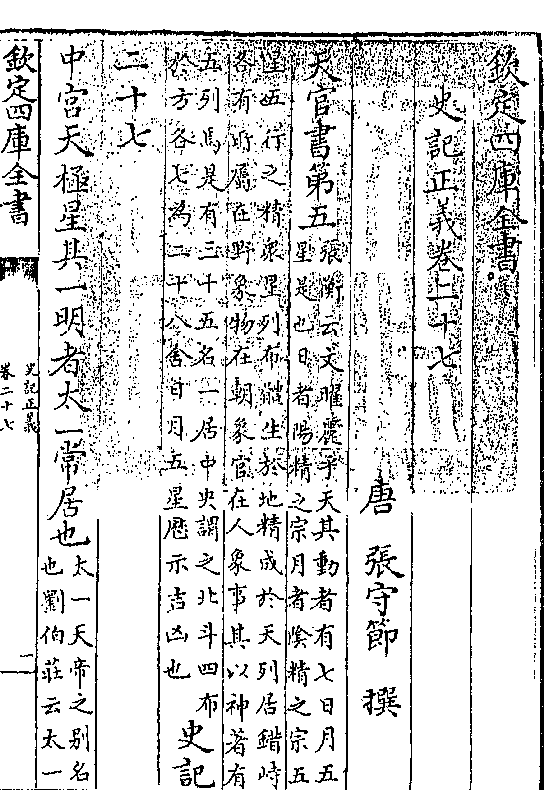 欽定四庫全書
史記正義卷二十七
唐 張守節 撰
天官書第五 張衡云文曜麗乎天其動者有七日月五
星是也日者陽精之宗月者陰精之宗五
星五行之精衆星列布體生於地精成於天列居錯峙
各有所屬在野象物在朝象官在人象事其以神著有
五列焉是有三十五名一居中央謂之北斗四布
於方各七為二十八舍日月五星歷示吉凶也
史記
二十七
中宫天極星其一明者太一常居也 太一天帝之别名
也劉伯莊云太一
欽定四庫全書
史記正義
卷二十七
一